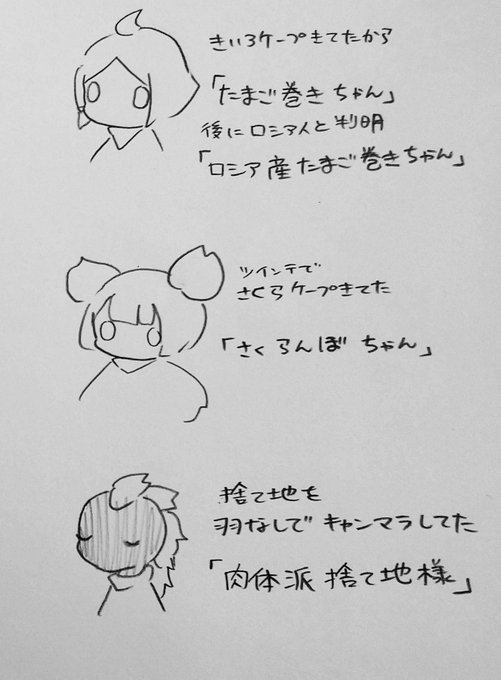 きいろケープきてたから
「たまご巻きちゃん」
後にロシア人と判明
「ロシア産たまご巻きちゃん」
ツインテで
さくらケープきてた
「さくらんぼちゃん」
捨て地を
羽なしでキャンマラしてた
「肉体派捨て地様」